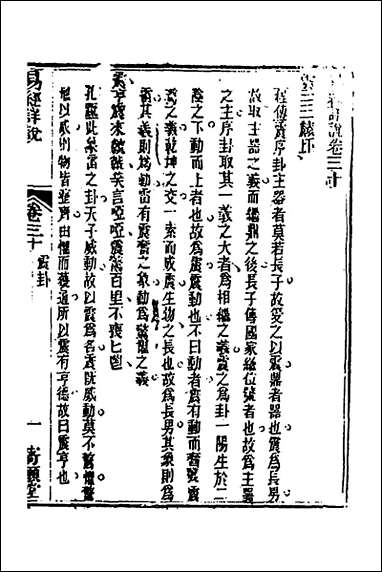 易經詳說卷三十
震上震下
程傳震序卦主器者莫若長子故受之以震鼎者器也震為長男
故取主器之義而繼鼎之後長子傳國家繼位號者也故為主器
之主序卦取其一義之大者為相繼之義震之為卦一陽生於二
陰之下動而上者也故為震震動也不曰動者震有動而奮發震
驚之義乾坤之交一索而成震生物之長也故為長男其象則為
雷其義則為動雷有震奮之象動為驚懼之義
震亨震來虩虩笑言啞啞震驚百里不喪匕鬯
孔疏此象雷之卦天子威動故以震為名震既威動莫不驚懼驚
懼以威則物皆整齊由懼而獲通所以震有亨德故曰震亨也
易經詳說
卷三十 震卦
一
寄願堂